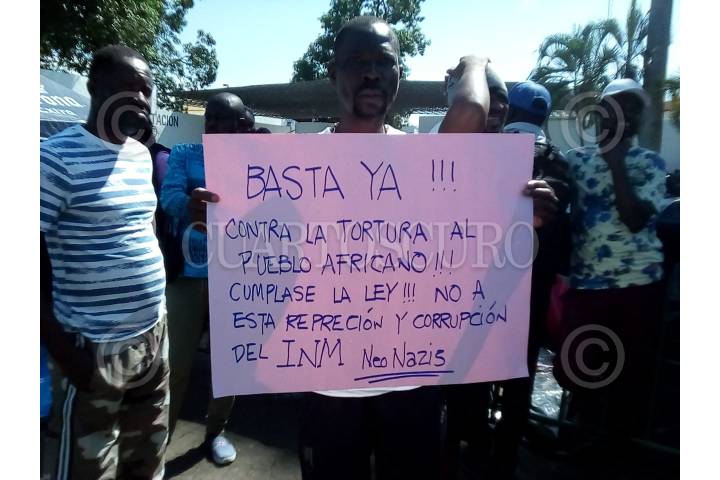 BASTA YA !!!
CONTRA LA TORTURA AL
PUEBLO AFRICANO!!!
CUMPLASE LA LEY!!! NO A
ESTA REPRECIÓN Y CORRUPCIÓN
DEL INM NeoNazis
CUARTOSCURO
TACION